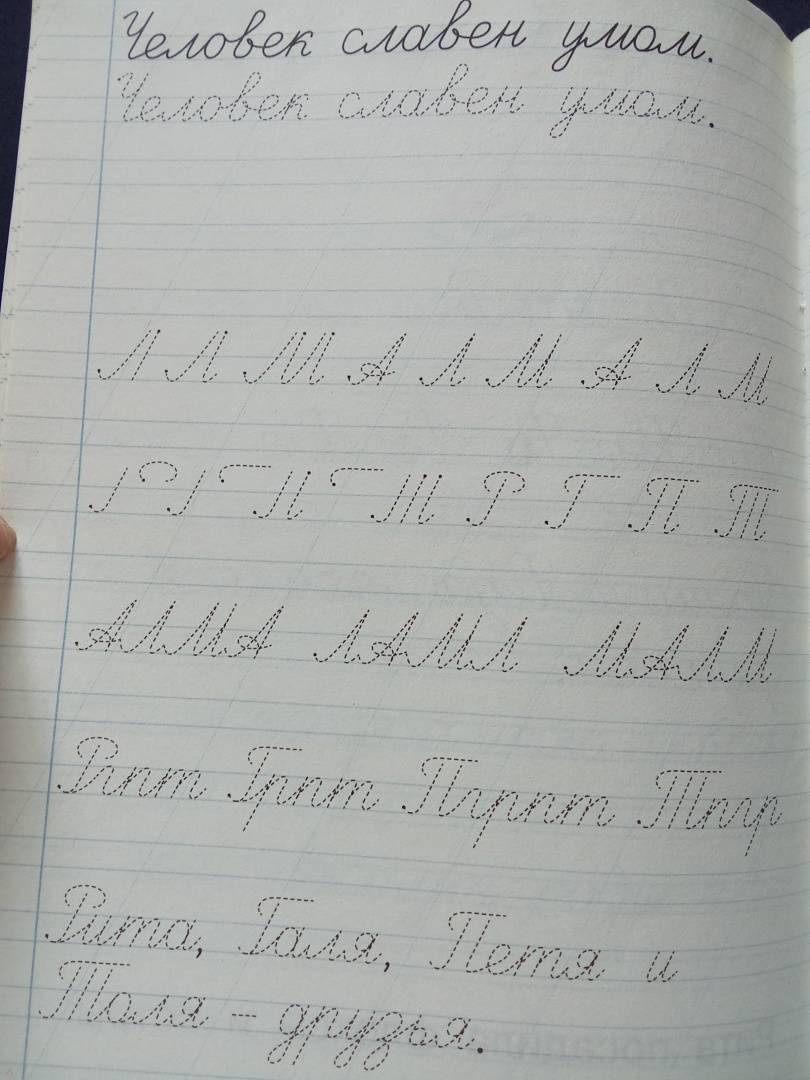 Человек славен умом.
Человек славен умом.
Л Л М А Л М А Л М
Р Г П Т
АЛМА ЛАМЛ МАЛМ
Ргпт Грпт Пгрпт Тпгр
Рита, Галя, Петя и
Толя – друзья.